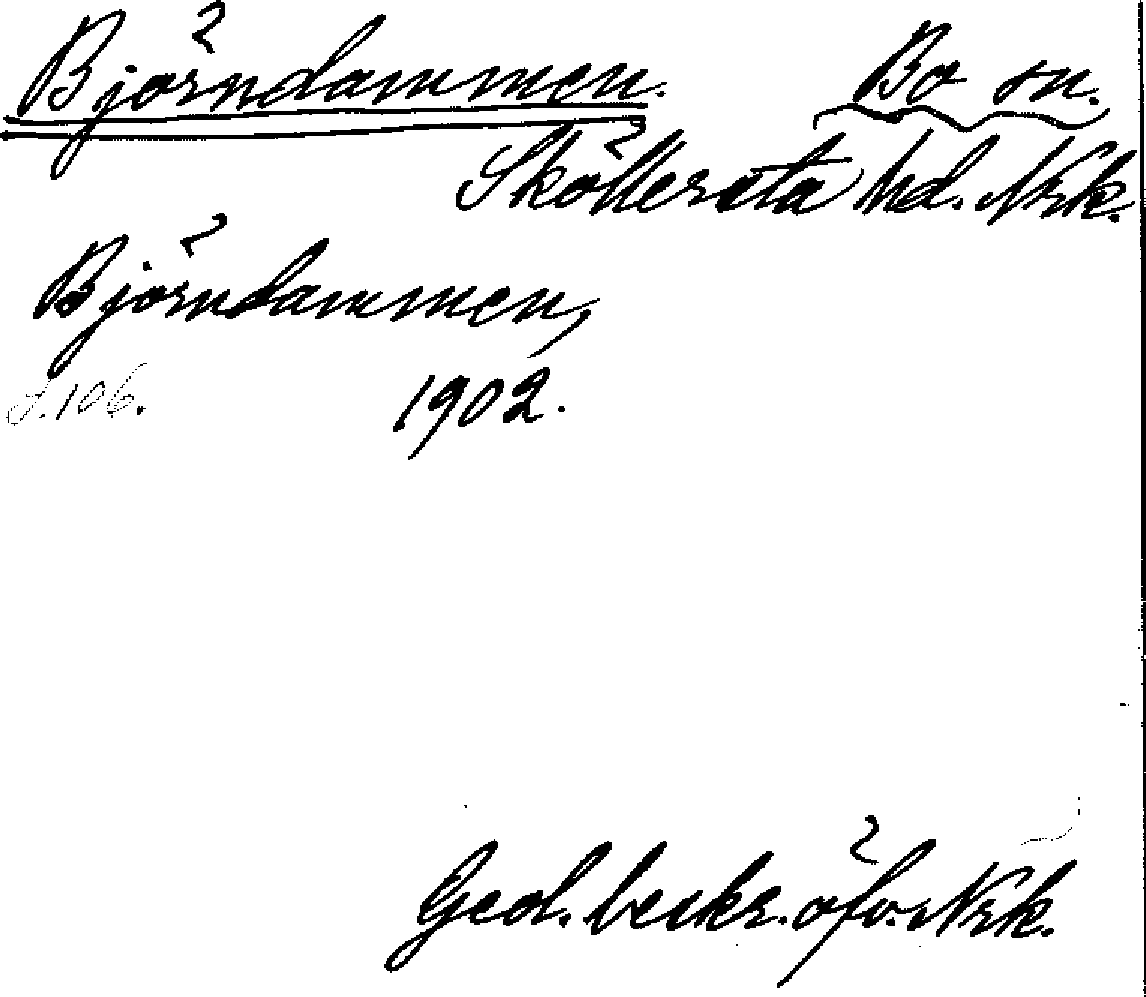 Björndammen. Bo sn.
Sköllersta hd. Nrk.
Björndammen,
s. 106. 1902.
Geol. beskr. öfv. Nrk.